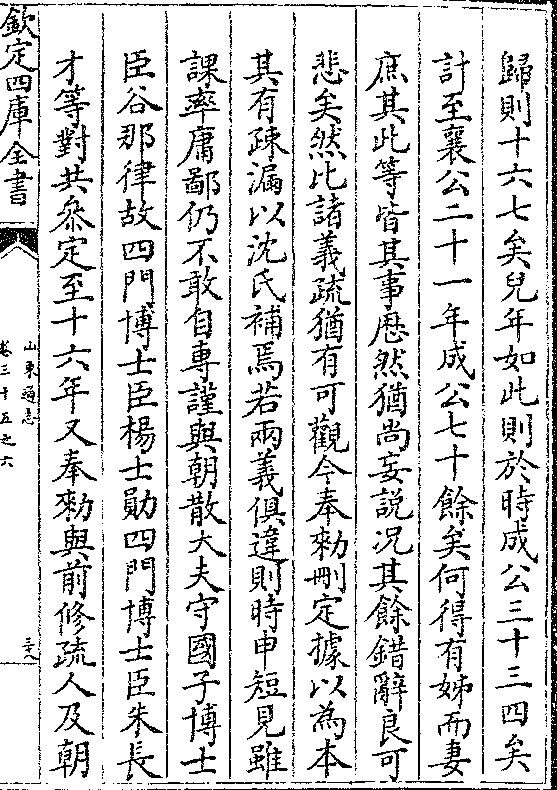 歸則十六七矣兒年如此則於時成公三十三四矣
計至襄公二十一年成公七十餘矣何得有姊而妻
庶其此等皆其事歴然猶尚妄説况其餘錯辭良可
悲矣然比諸義疏猶有可觀今奉勅刪定據以為本
其有疎漏以沈氏補焉若兩義俱違則時申短見雖
課率庸鄙仍不敢自専謹與朝散大夫守國子博士
臣谷那律故四門博士臣楊士勛四門博士臣朱長
才等對共叅定至十六年又奉勅與前修疏人及朝
欽定四庫全書
山東通志
卷三十五之六
三八